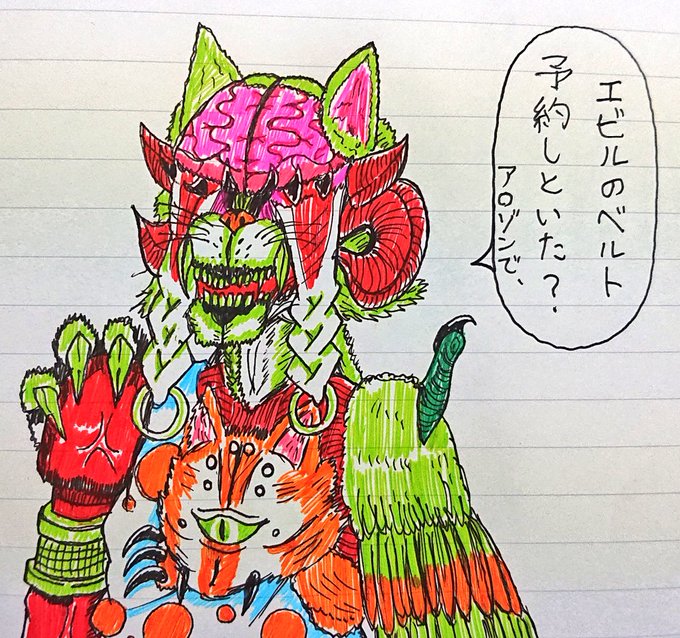 エビルのベルト
予約しといた？
アロゾンで、